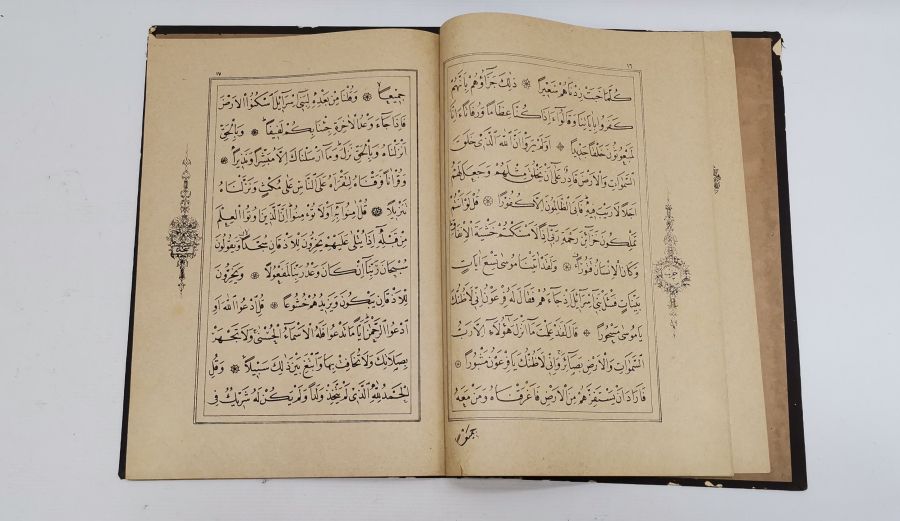 ١٦
كُلَّمَا خَبَتْ زِدْنَاهُمْ سَعِيرًا ذٰلِكَ جَزَاؤُهُمْ بِاَنَّهُمْ
كَفَرُوا بِاٰيَاتِنَا وَقَالُوا ءَاِذَا كُنَّا عِظَامًا وَرُفَاتًا ءَاِنَّا
لَمَبْعُوثُونَ خَلْقًا جَدِيدًا اَوَلَمْ يَرَوْا اَنَّ اللّٰهَ الَّذِي خَلَقَ
السَّمٰوَاتِ وَالْاَرْضَ قَادِرٌ عَلٰى اَنْ يَخْلُقَ مِثْلَهُمْ وَجَعَلَ لَهُمْ
اَجَلًا لَا رَيْبَ فِيهِ فَاَبَى الظَّالِمُونَ اِلَّا كُفُورًا قُلْ لَوْ اَنْتُمْ
تَمْلِكُونَ خَزَائِنَ رَحْمَةِ رَبِّي اِذًا لَاَمْسَكْتُمْ خَشْيَةَ الْاِنْفَاقِ
وَكَانَ الْاِنْسَانُ قَتُورًا وَلَقَدْ اٰتَيْنَا مُوسٰى تِسْعَ اٰيَاتٍ
بَيِّنَاتٍ فَسْئَلْ بَنِي اِسْرَائِيلَ اِذْ جَاءَهُمْ فَقَالَ لَهُ فِرْعَوْنُ اِنِّي لَاَظُنُّكَ
يَا مُوسٰى مَسْحُورًا قَالَ لَقَدْ عَلِمْتَ مَا اَنْزَلَ هٰؤُلَاءِ اِلَّا رَبُّ
السَّمٰوَاتِ وَالْاَرْضِ بَصَائِرَ وَاِنِّي لَاَظُنُّكَ يَا فِرْعَوْنُ مَثْبُورًا
فَاَرَادَ اَنْ يَسْتَفِزَّهُمْ مِنَ الْاَرْضِ فَاَغْرَقْنَاهُ وَمَنْ مَعَهُ
جميعا
١٧
جَمِيعًا وَقُلْنَا مِنْ بَعْدِهِ لِبَنِي اِسْرَائِيلَ اسْكُنُوا الْاَرْضَ
فَاِذَا جَاءَ وَعْدُ الْاٰخِرَةِ جِئْنَا بِكُمْ لَفِيفًا وَبِالْحَقِّ
اَنْزَلْنَاهُ وَبِالْحَقِّ نَزَلَ وَمَا اَرْسَلْنَاكَ اِلَّا مُبَشِّرًا وَنَذِيرًا
وَقُرْاٰنًا فَرَقْنَاهُ لِتَقْرَاَهُ عَلَى النَّاسِ عَلٰى مُكْثٍ وَنَزَّلْنَاهُ
تَنْزِيلًا قُلْ اٰمِنُوا بِهِ اَوْ لَا تُؤْمِنُوا اِنَّ الَّذِينَ اُوتُوا الْعِلْمَ
مِنْ قَبْلِهِ اِذَا يُتْلٰى عَلَيْهِمْ يَخِرُّونَ لِلْاَذْقَانِ سُجَّدًا وَيَقُولُونَ
سُبْحَانَ رَبِّنَا اِنْ كَانَ وَعْدُ رَبِّنَا لَمَفْعُولًا وَيَخِرُّونَ
لِلْاَذْقَانِ يَبْكُونَ وَيَزِيدُهُمْ خُشُوعًا قُلِ ادْعُوا اللّٰهَ اَوِ
ادْعُوا الرَّحْمٰنَ اَيًّا مَا تَدْعُوا فَلَهُ الْاَسْمَاءُ الْحُسْنٰى وَلَا تَجْهَرْ
بِصَلَاتِكَ وَلَا تُخَافِتْ بِهَا وَابْتَغِ بَيْنَ ذٰلِكَ سَبِيلًا وَقُلِ
الْحَمْدُ لِلّٰهِ الَّذِي لَمْ يَتَّخِذْ وَلَدًا وَلَمْ يَكُنْ لَهُ شَرِيكٌ فِي